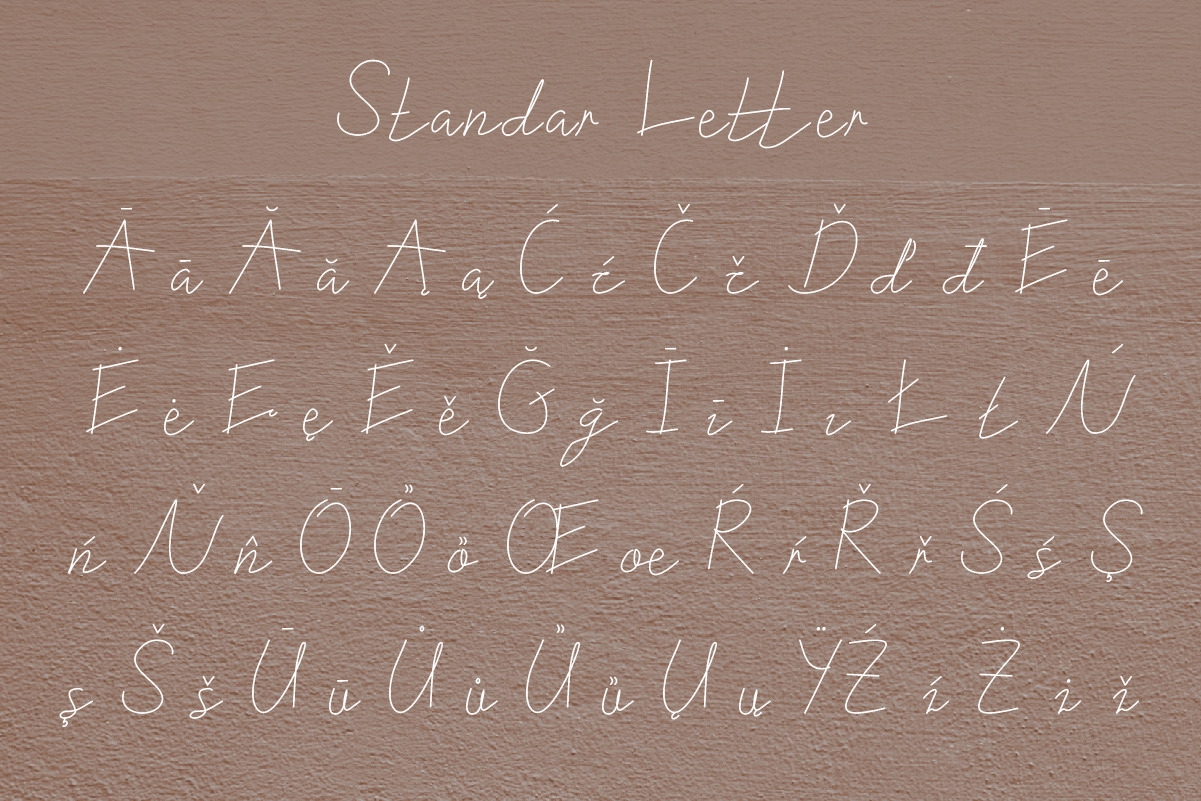 Standar Letter
Ā ā Ă ă Ą ą Ć ć Č č Ď ď đ Ē ē
Ė ė Ę ę Ě ě Ğ ğ Ī ī İ ı Ł ł Ń
ń Ň n̂ Ō Ő ő Œ œ Ŕ ŕ Ř ř Ś ś Ş
ş Š š Ū ū Ů ů Ű ű Ų ų Ÿ Ź ź Ż ż ž